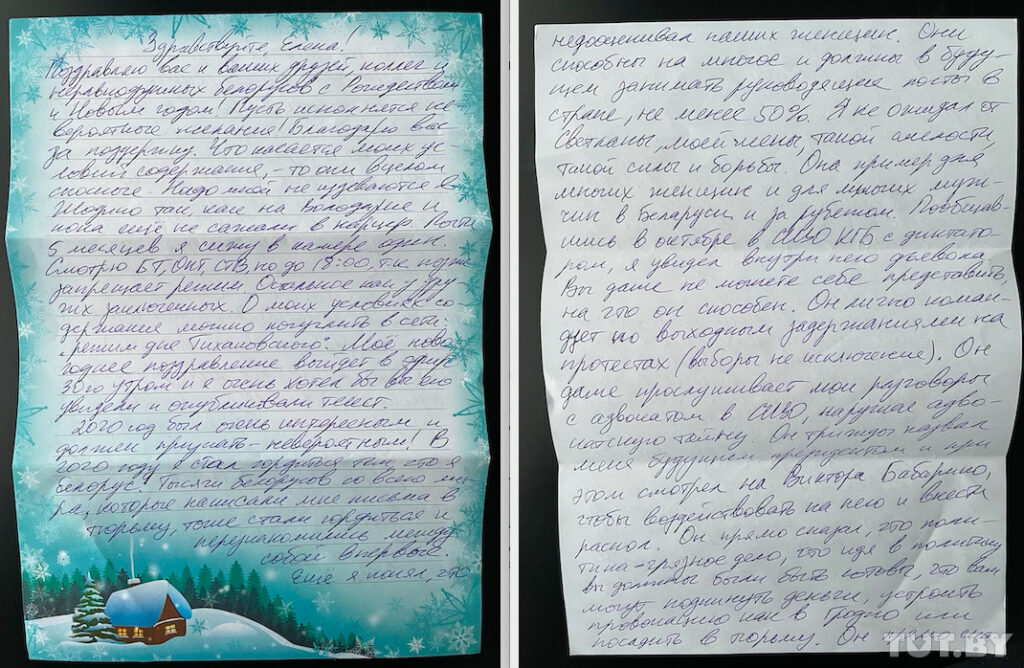 Здравствуйте, Елена!
Поздравляю вас и ваших друзей, коллег и
неравнодушных белорусов с Рождеством
и Новым годом! Пусть исполнятся не-
вероятные желания! Благодарю вас
за поддержку. Что касается моих ус-
ловий содержания, - то они в целом
сносные. Надо мной не издеваются в
Жодино так, как на Володарке и
пока ещё не сажали в карцер. Почти
5 месяцев я сижу в камере один.
Смотрю БТ, ОНТ, СТВ, но до 18:00, т.к. позже
запрещает режим. Остальное как у дру-
гих заключённых. О моих условиях со-
держания можно погуглить в сети:
"режим дня Тихановского". Моё ново-
годнее поздравление выйдет в эфир
30го утром и я очень хотел бы вы его
увидели и опубликовали текст.
2020 год был очень интересным и
должен признать - невероятным! В
2020 году я стал гордиться тем, что я
белорус. Тысячи белорусов со всего ми-
ра, которые написали мне письма в
тюрьму, тоже стали гордиться и
перезнакомились между
собой впервые.
Ещё я понял, что
недооценивал наших женщин. Они
способны на многое и должны в буду-
щем занимать руководящие посты в
стране, не менее 50%. Я не ожидал от
Светланы, моей жены, такой смелости,
такой силы и борьбы. Она пример для
многих женщин и для многих муж-
чин в Беларуси и за рубежом. Пообщав-
шись в октябре в СИЗО КГБ с диктато-
ром, я увидел внутри него дьявола.
Вы даже не можете себе представить,
на что он способен. Он лично коман-
дует по выходным задержаниями на
протестах (выборы не исключение). Он
даже прослушивает мои разговоры
с адвокатом в СИЗО, нарушая адво-
катскую тайну. Он трижды назвал
меня будущем президентом и при
этом смотрел на Виктора Бабарико,
чтобы воздействовать на него и внести
раскол. Он прямо сказал, что поли-
тика - грязное дело, что идя в политику
вы должны были быть готовы, что вам
могут подкинуть деньги, устроить
провокацию как в Гродно или
посадить в тюрьму. Он
TUT.BY